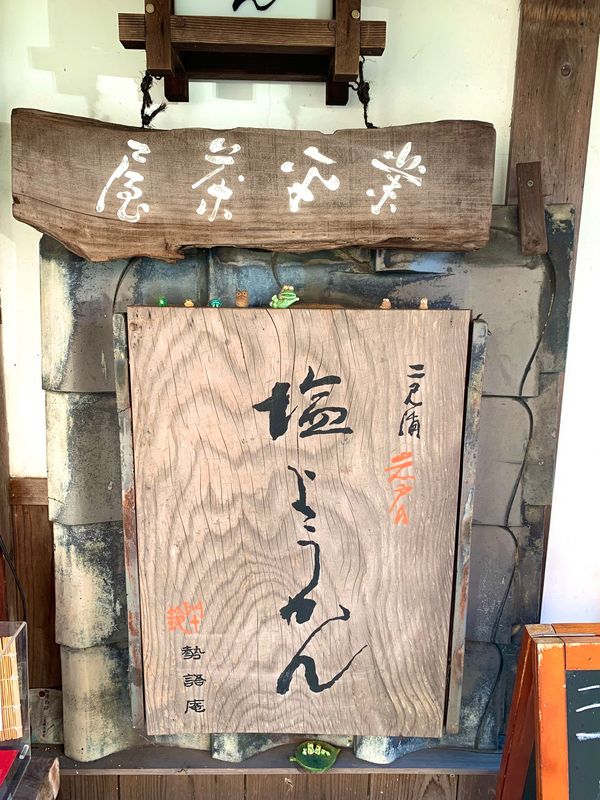 ん
業平茶屋
二見浦
塩ようかん
勢語庵